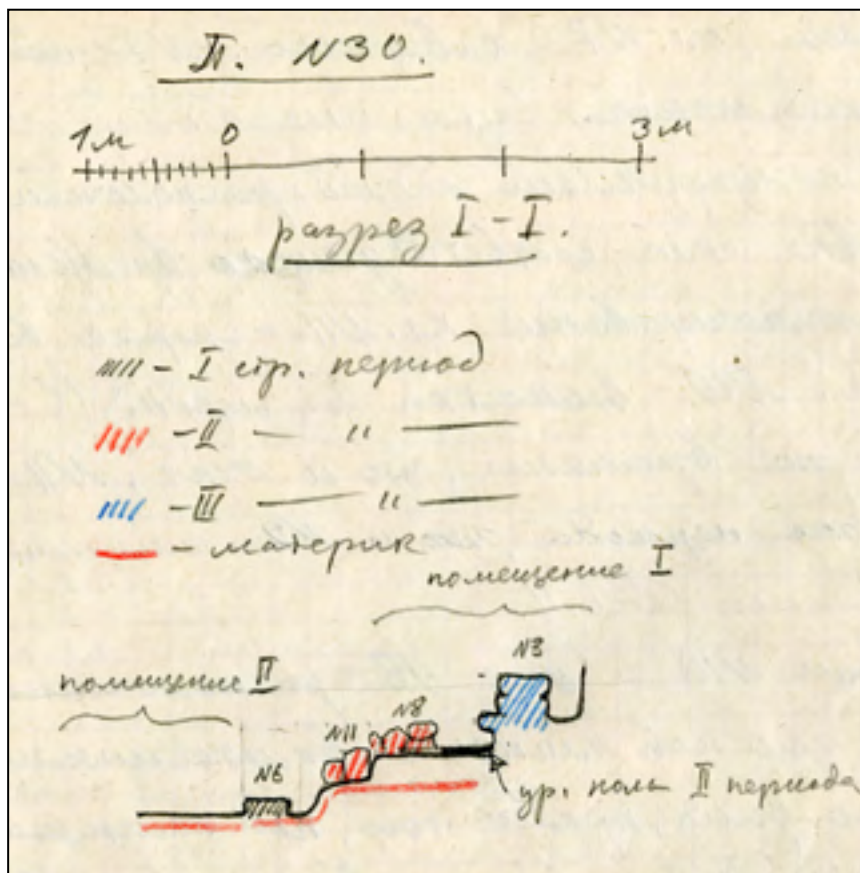 П. N30.
1м 0 3м
разрез I-I.
- I стр. период
- II — " —
- III — " —
- материк
помещение I
помещение II
N3
N8
N11
N6
ур. пола II периода